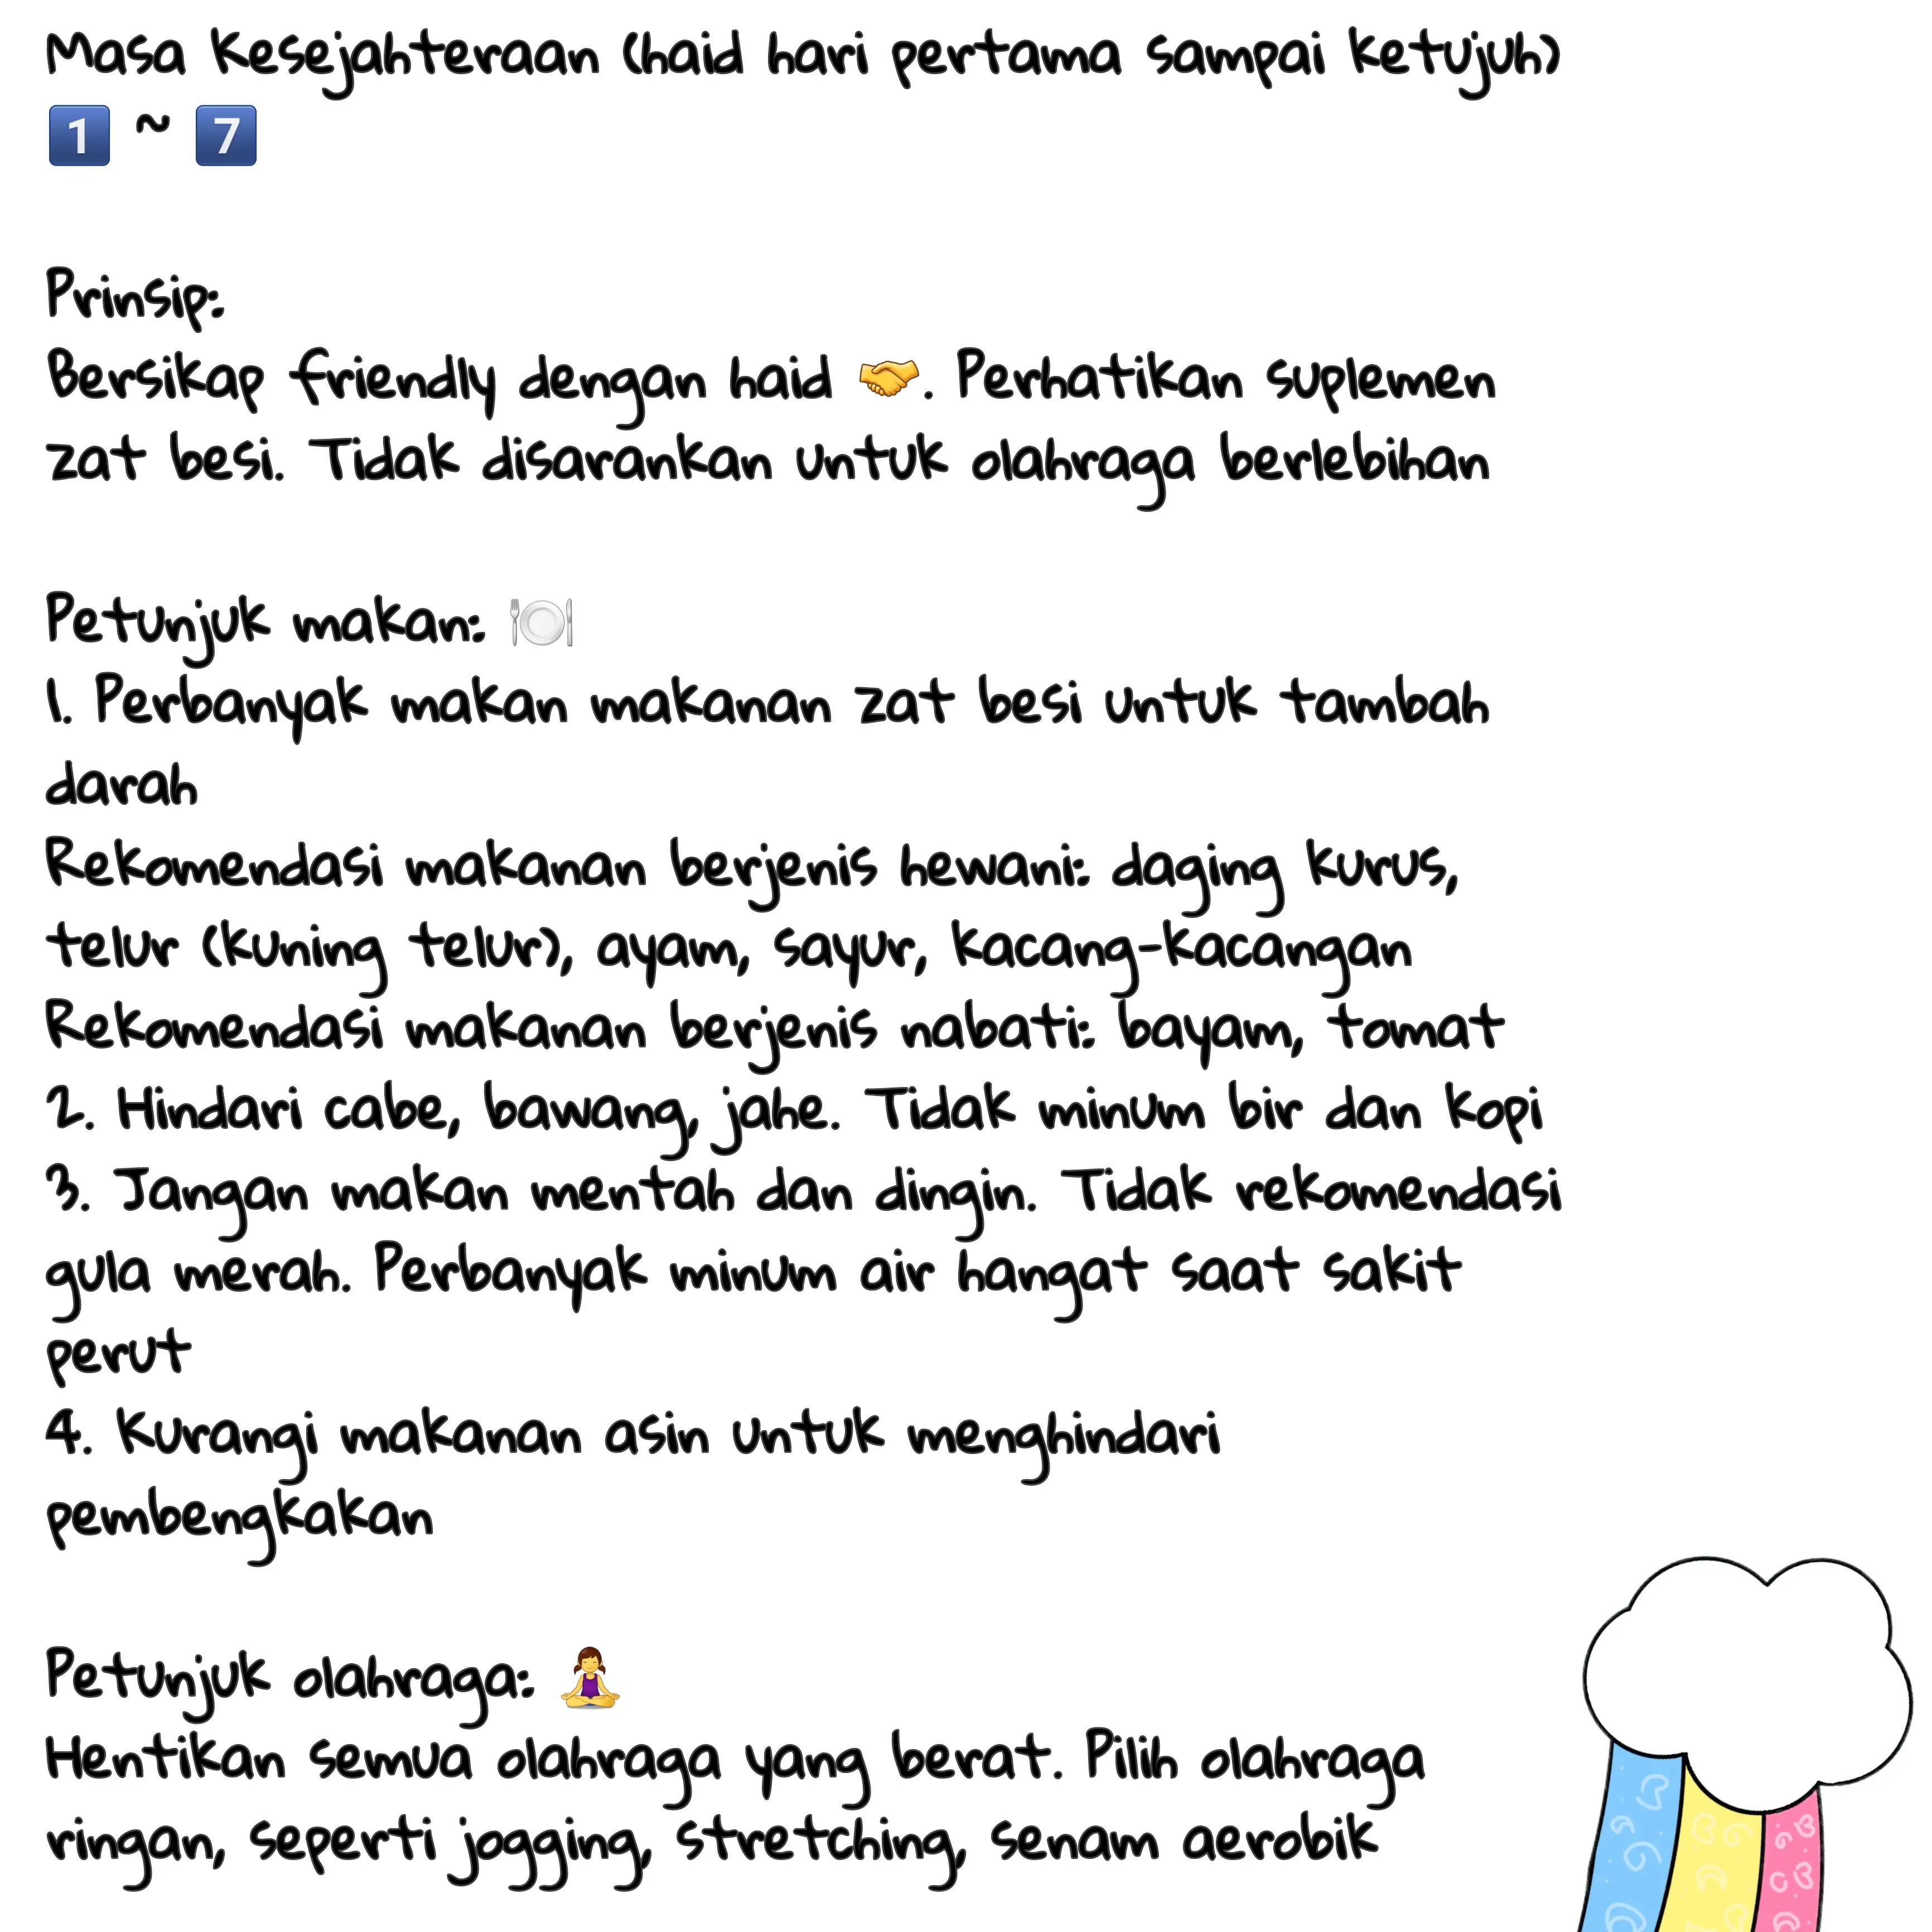 Masa kesejahteraan (haid hari pertama sampai ketujuh)
1 ~ 7
Prinsip:
Bersikap friendly dengan haid 🤝. Perhatikan suplemen
zat besi. Tidak disarankan untuk olahraga berlebihan
Petunjuk makan: 🍽️
1. Perbanyak makan makanan zat besi untuk tambah
darah
Rekomendasi makanan berjenis hewani: daging kurus,
telur (kuning telur), ayam, sayur, kacang-kacangan
Rekomendasi makanan berjenis nabati: bayam, tomat
2. Hindari cabe, bawang, jahe. Tidak minum bir dan kopi
3. Jangan makan mentah dan dingin. Tidak rekomendasi
gula merah. Perbanyak minum air hangat saat sakit
perut
4. Kurangi makanan asin untuk menghindari
pembengkakan
Petunjuk olahraga: 🧘‍♀️
Hentikan semua olahraga yang berat. Pilih olahraga
ringan, seperti jogging, stretching, senam aerobik